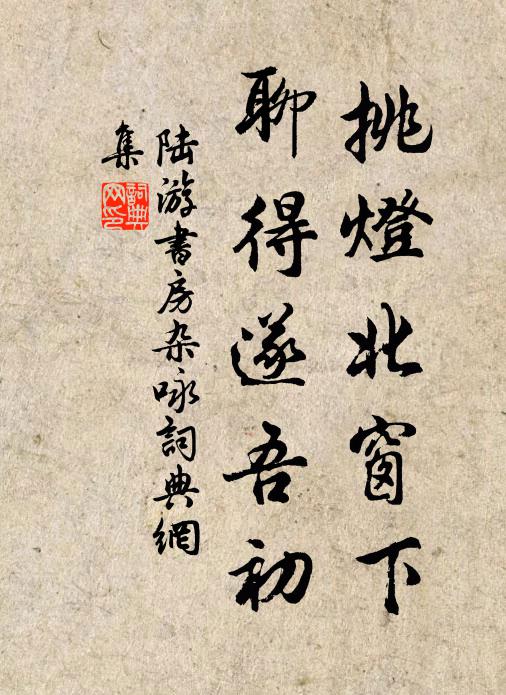 挑燈北窗下
聊得遂吾初
陆游書房杂咏詞典網
集
詞典網印